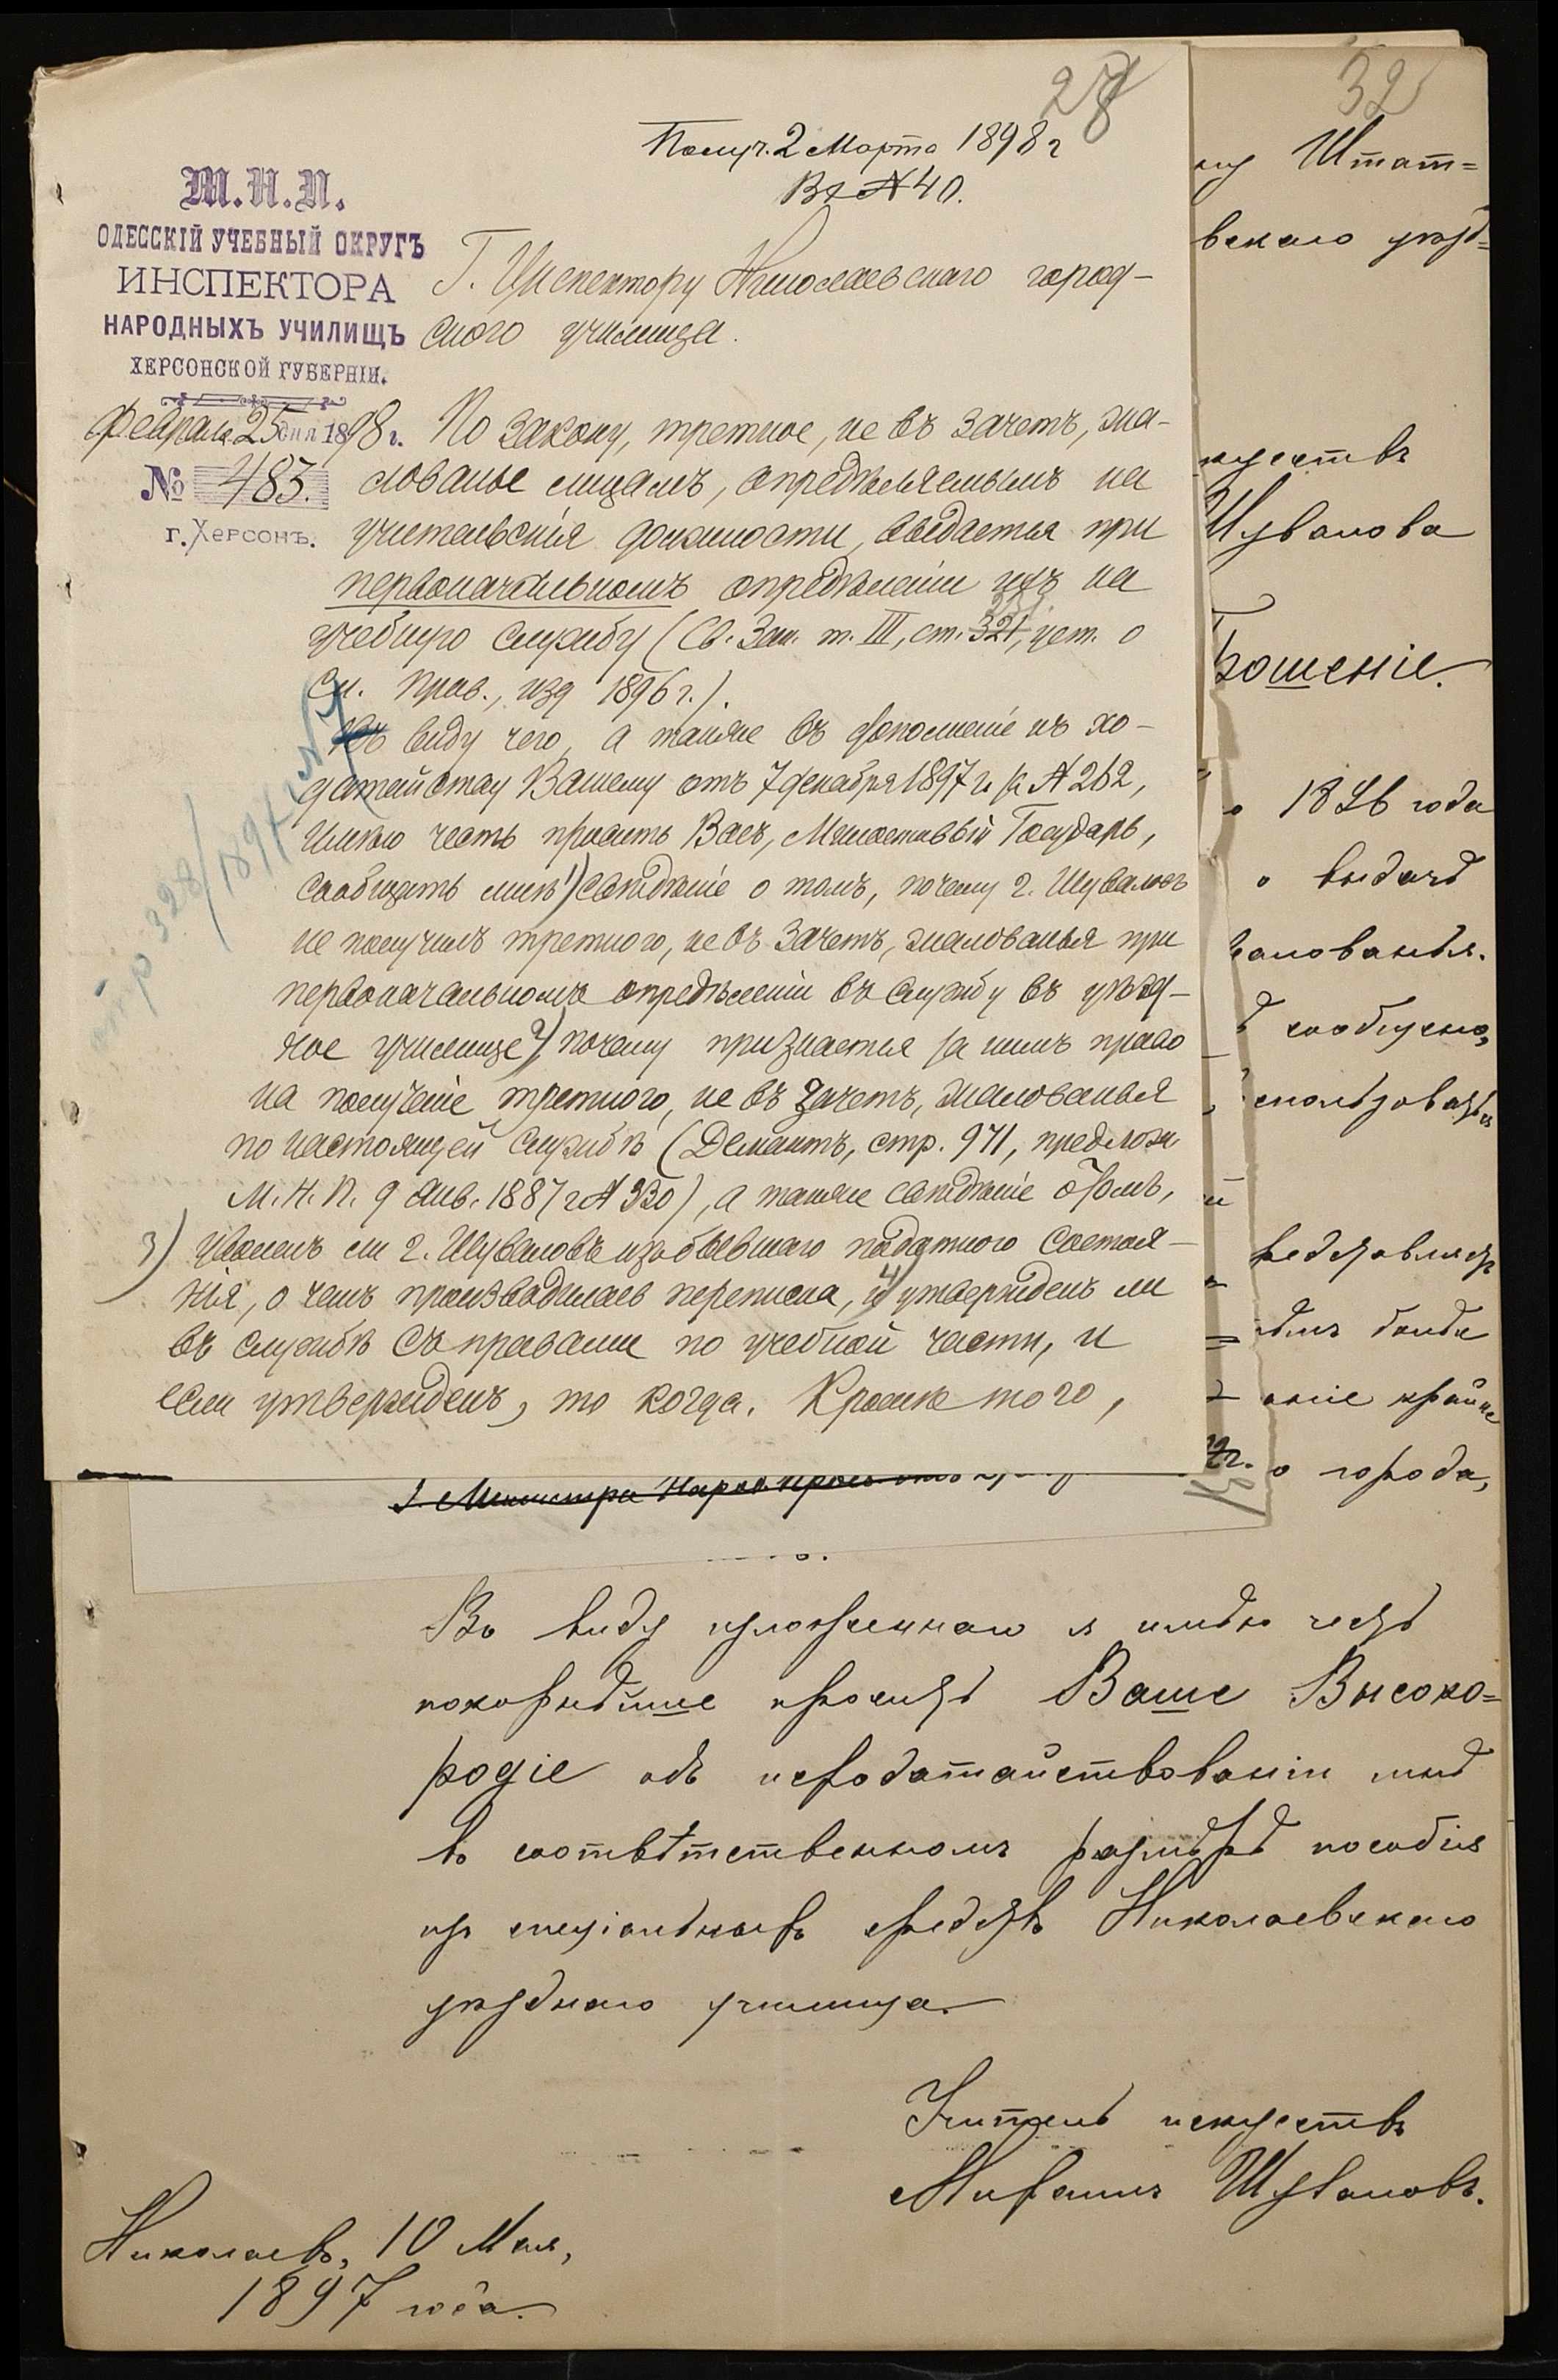 28
Получ. 2 Марта 1898 г
Вх № 40.
М.Н.П.
ОДЕССКІЙ УЧЕБНЫЙ ОКРУГЪ
ИНСПЕКТОРА
НАРОДНЫХЪ УЧИЛИЩЪ
ХЕРСОНСКОЙ ГУБЕРНІИ.
Февраля 25 дня 1898 г.
№ 483.
г. Херсонъ.
Г. Инспектору Николаевскаго город-
ского училища.
По закону, третное, не въ зачетъ, жа-
лованье лицамъ, опредѣляемымъ на
учительскія должности, выдается при
первоначальномъ опредѣленіи ихъ на
учебную службу (Св. Зак. т. III, ст. 321, уст. о
сл. прав., изд 1896 г.).
Въ виду чего, а также въ дополненіе къ хо-
датайству Вашему отъ 7 декабря 1897 г. за № 262,
имѣю честь просить Васъ, Милостивый Государь,
сообщить мнѣ 1) свѣдѣніе о томъ, почему г. Шуваловъ
не получилъ третного, не въ зачетъ, жалованья при
первоначальномъ опредѣленіи въ службу въ уѣзд-
ное училище 2) почему признается за нимъ право
на полученіе третного, не въ зачетъ, жалованья
по настоящей службѣ (Демантъ, стр. 971, предлож
М. Н. П. 9 Янв. 1887 г № 330), а также свѣдѣніе о томъ,
3) уволенъ ли г. Шуваловъ изъ бывшаго податного состоя-
нія, о чемъ производилась переписка, 4) утвержденъ ли
въ службѣ съ правами по учебной части, и
если утвержденъ, то когда. Кромѣ того,
стр 328/1897
г. Министра Народ. Просв.
32
ну Штат=
вскаго уѣзд=
кусствъ
Шувалова
ошеніе.
1896 года
о выдачѣ
алованья.
сообщено,
едставля
было
аніе крайне
о города,
Въ виду изложеннаго я имѣю честь
покорнѣйше просить Ваше Высоко=
родіе объ исходатайствованіи мнѣ
въ соотвѣтственномъ размѣрѣ пособія
изъ спеціальныхъ средствъ Николаевскаго
уѣзднаго училища.
Учитель искусствъ
Михаилъ Шуваловъ.
Николаевъ, 10 Мая,
1897 года.